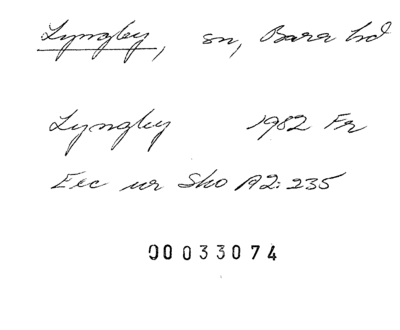 Lyngby, sn, Bara hd
Lyngby 1982 Fr
Exc ur Sko A2: 235
00033074